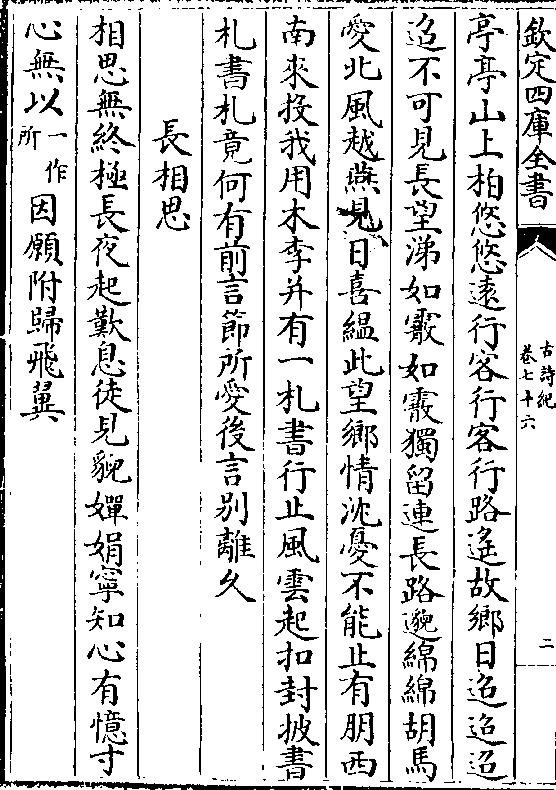 欽定四庫全書
古詩紀
卷七十六
二
亭亭山上柏悠悠遠行客行客行路遙故鄉日迢迢迢
迢不可見長望涕如霰如霰獨留連長路邈綿綿胡馬
愛北風越燕見日喜緼此望鄉情沈憂不能止有朋西
南來投我用木李并有一札書行止風雲起扣封披書
札書札竟何有前言節所愛後言别離久
長相思
相思無終極長夜起歎息徒見貌嬋娟寧知心有憶寸
心無以一作所因願附歸飛翼